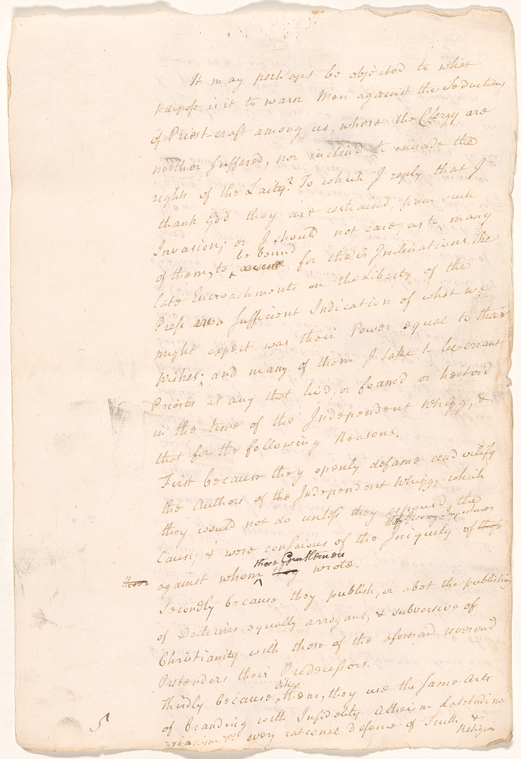 It may perhaps be objected to what
purpose is it to warn Men against the Seductions
of Priestcraft among us, where the Clergy are
neither suffered, nor inclin'd to invade the
rights of the Laity? To which I reply that I
thank God they are restrained from such
Invasion; or I should not care as to many
to bound
of them, to for their Inclinations, the
late Encroachments on the Liberty of the
Press are a sufficient Indication of what we
might expect was their Power equal to their
wishes; and many of them I take to be errant
Priests as any that lied or foamed or hectord
in the time of the Independent Whigg, &
that for the following Reasons.
First because they openly defame and vilify
the Authors of the Independent Whigg which
they would not do unless they espoused the
Cause, & were conscious of the Iniquity of
those Gentlemen
against whom wrote.
Secondly because they publish, or abet the publishing
of Doctrines equally arrogant, & subversive of
Christianity with those of the aforesaid reverend
Pretenders their Predecessors.
like
thirdly because, them, they use the same Arts
of branding with Infidelity Atheism Latitudina
every rational defence of Truth &
Religion
5